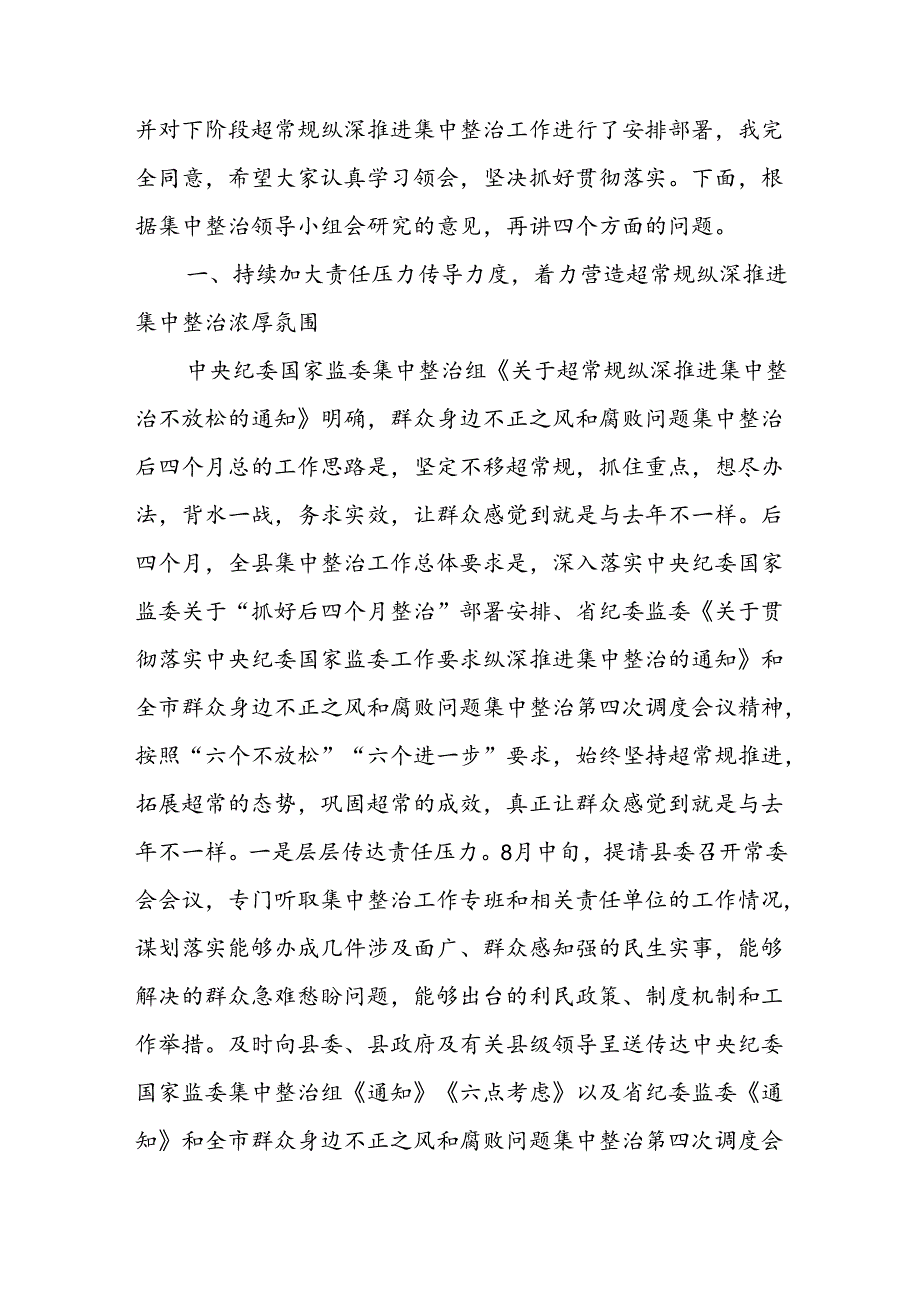 并对下阶段超常规纵深推进集中整治工作进行了安排部署，我完
全同意，希望大家认真学习领会，坚决抓好贯彻落实。下面，根
据集中整治领导小组会研究的意见，再讲四个方面的问题。
一、持续加大责任压力传导力度，着力营造超常规纵深推进
集中整治浓厚氛围
中央纪委国家监委集中整治组《关于超常规纵深推进集中整
治不放松的通知》明确，群众身边不正之风和腐败问题集中整治
后四个月总的工作思路是，坚定不移超常规，抓住重点，想尽办
法，背水一战，务求实效，让群众感觉到就是与去年不一样。后
四个月，全县集中整治工作总体要求是，深入落实中央纪委国家
监委关于“抓好后四个月整治”部署安排、省纪委监委《关于贯
彻落实中央纪委国家监委工作要求纵深推进集中整治的通知》和
全市群众身边不正之风和腐败问题集中整治第四次调度会议精神，
按照“六个不放松”“六个进一步”要求，始终坚持超常规推进，
拓展超常的态势，巩固超常的成效，真正让群众感觉到就是与去
年不一样。一是层层传达责任压力。8月中旬，提请县委召开常委
会会议，专门听取集中整治工作专班和相关责任单位的工作情况，
谋划落实能够办成几件涉及面广、群众感知强的民生实事，能够
解决的群众急难愁盼问题，能够出台的利民政策、制度机制和工
作举措。及时向县委、县政府及有关县级领导呈送传达中央纪委
国家监委集中整治组《通知》《六点考虑》以及省纪委监委《通
知》和全市群众身边不正之风和腐败问题集中整治第四次调度会